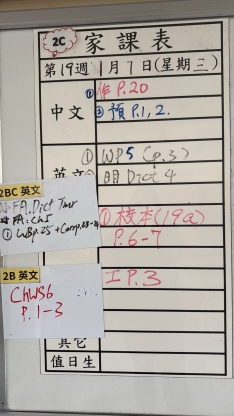 2C 家課表
第19週 1月7日(星期三)
中文 ① 作 P.20
② 預 P.1,2.
英文 ① WP5 (p.3)
② 明 Dict 4
2BC 英文
① WBp.25 + Comp.
① 校本(19a)
P.6-7
2B 英文
ChWS6
P.1-3
工 P.3
其它
值日生